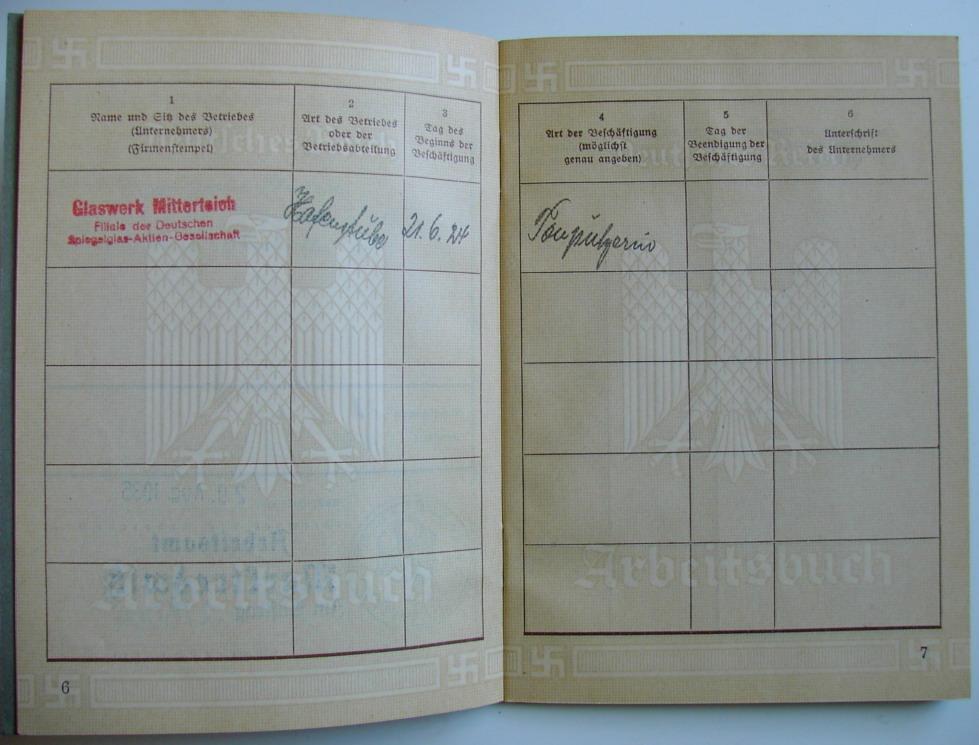 1
Name und Sitz des Betriebes
(Unternehmers)
(Firmenstempel)
2
Art des Betriebes
oder der
Betriebsabteilung
3
Tag des
Beginns der
Beschäftigung
Glaswerk Mitterteich
Filiale der Deutschen
Spiegelglas-Aktien-Gesellschaft
Hafenstube
21.6.24
6
4
Art der Beschäftigung
(möglichst
genau angeben)
5
Tag der
Beendigung der
Beschäftigung
6
Unterschrift
des Unternehmers
Tonputzerin
Arbeitsbuch
Arbeitsbuch
7